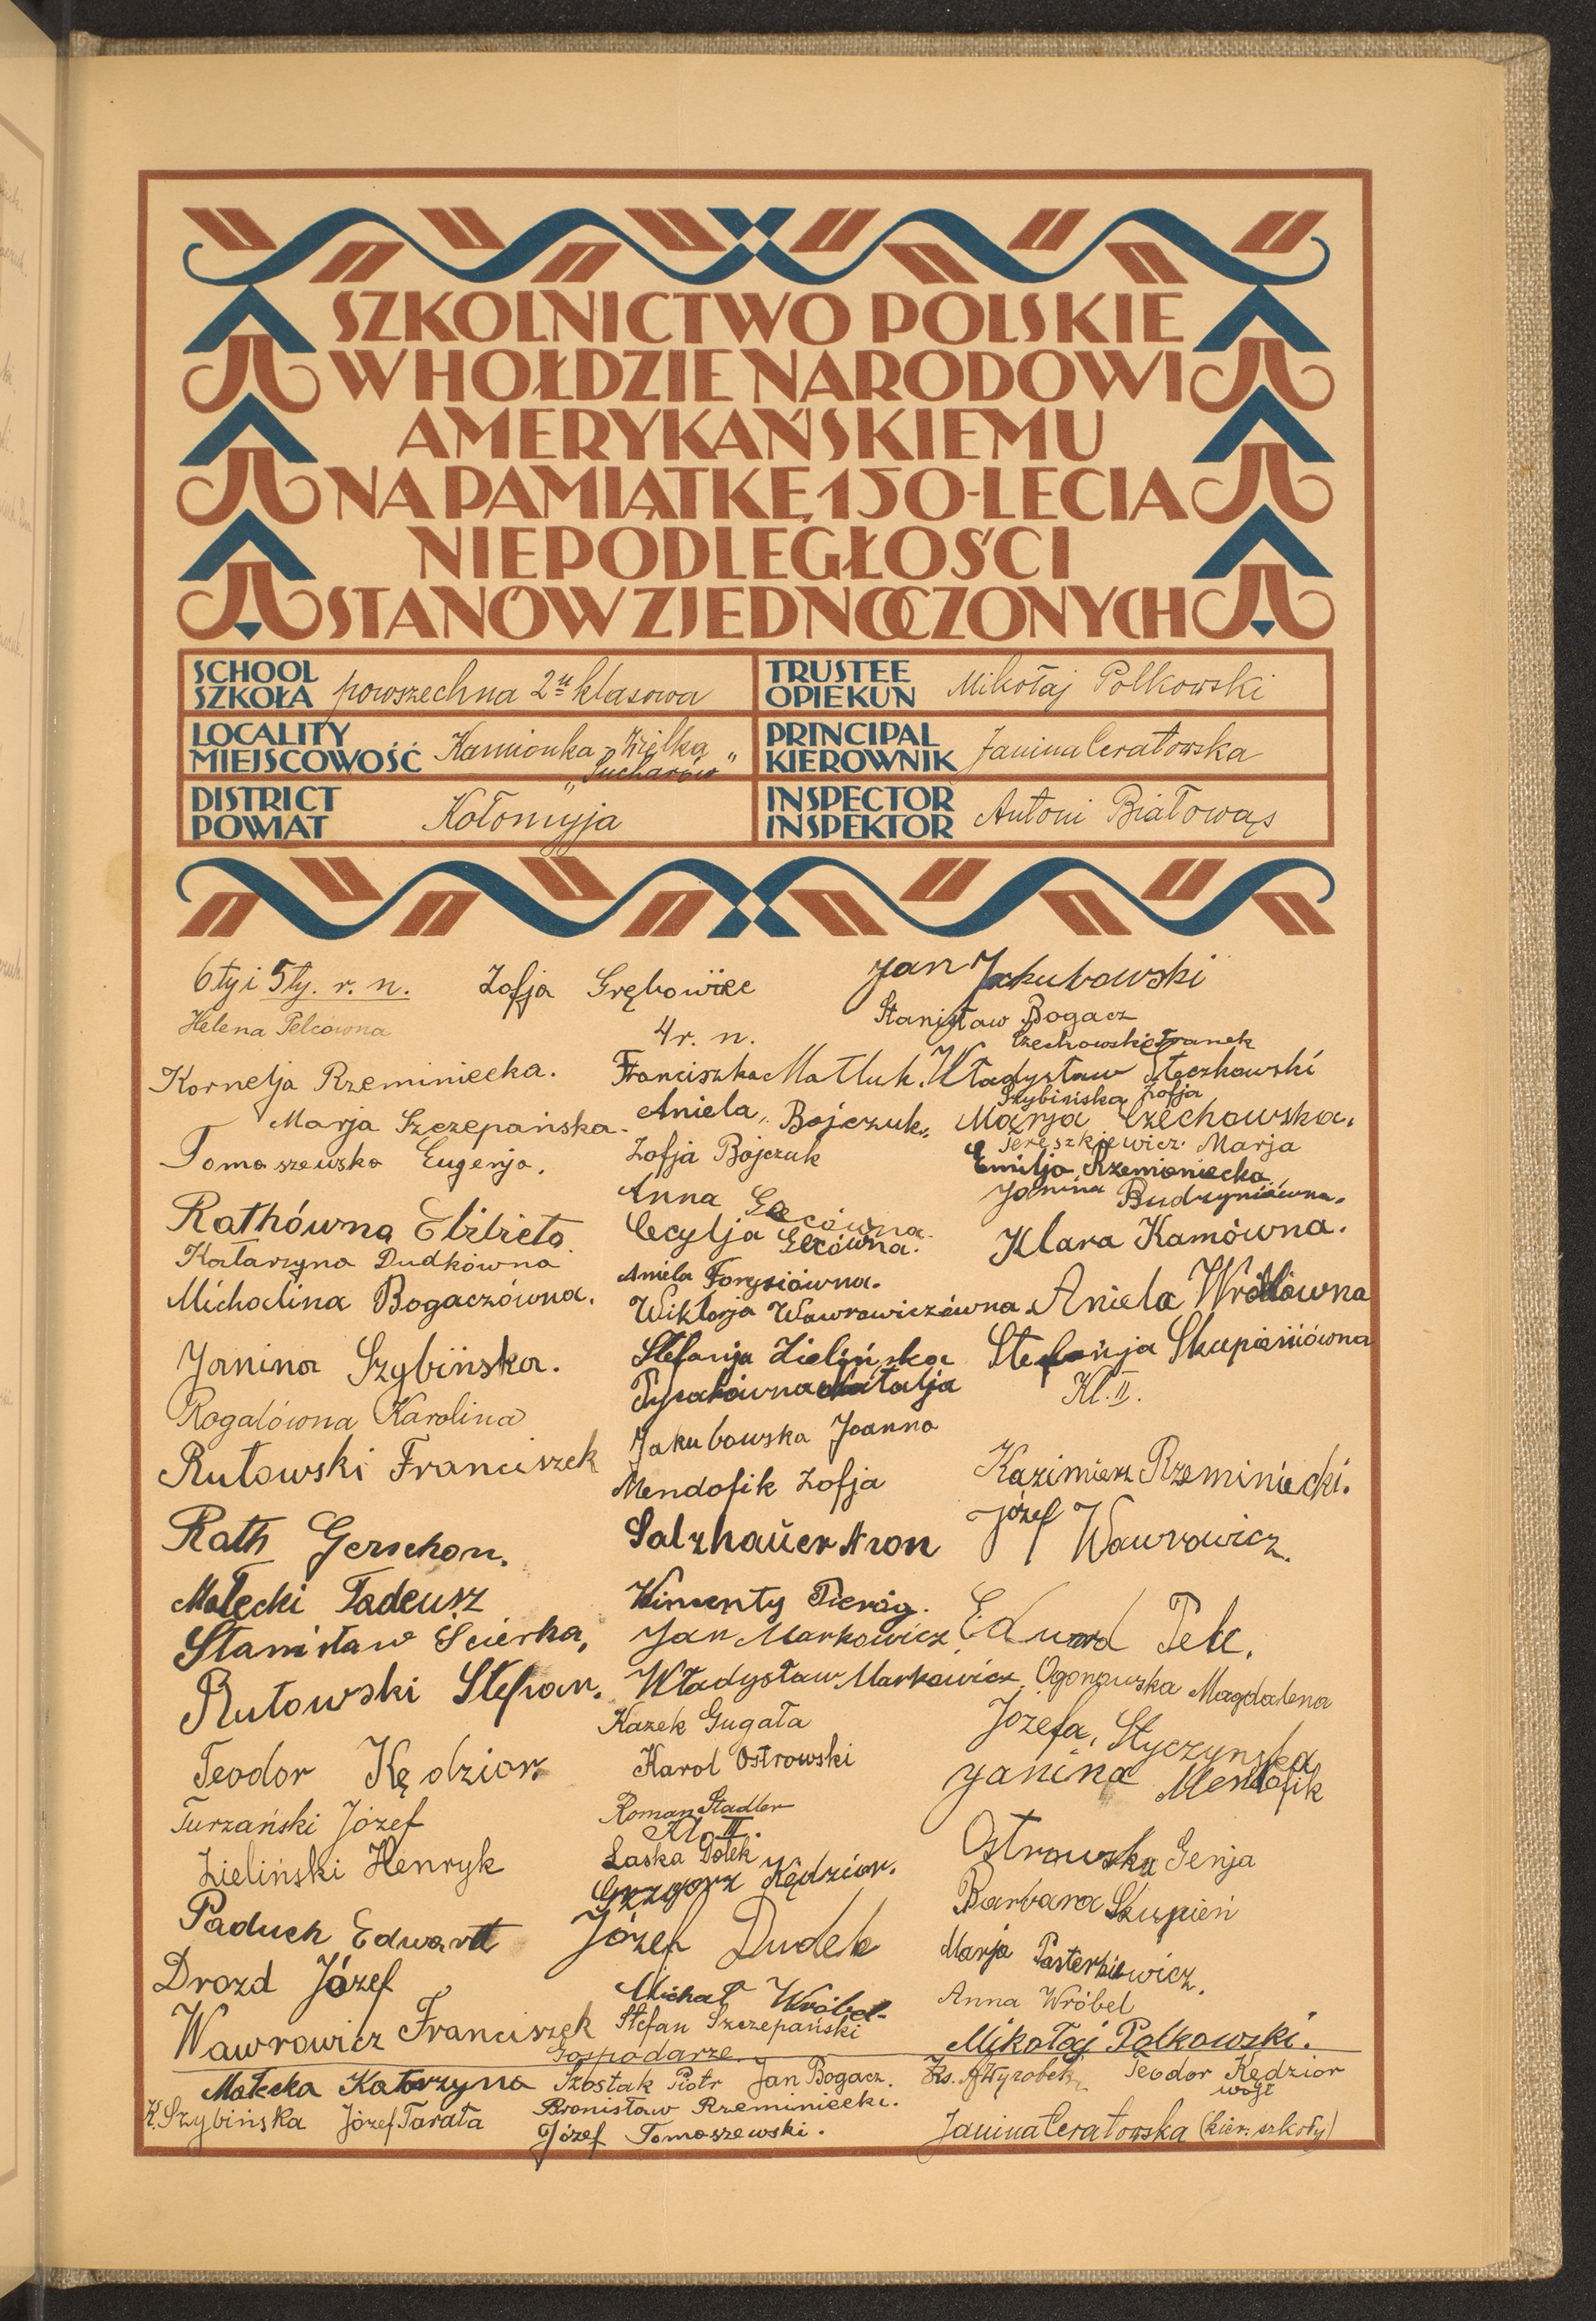 SZKOLNICTWO POLSKIE
W HOŁDZIE NARODOWI
AMERYKAŃSKIEMU
NA PAMIĄTKĘ 150-LECIA
NIEPODLEGŁOŚCI
STANÓW ZJEDNOCZONYCH
SCHOOL
SZKOŁA powszechna 2u klasowa
TRUSTEE
OPIEKUN Mikołaj Polkowski
LOCALITY
MIEJSCOWOŚĆ Kamionka Wielka
"Sucharów"
PRINCIPAL
KIEROWNIK Janina Ceratowska
DISTRICT
POWIAT Kołomyja
INSPECTOR
INSPEKTOR Antoni Białowąs
6ty i 5ty. r. n.
Helena Pelcówna
Kornelja Rzeminiecka.
Marja Szczepańska.
Tomaszewska Eugenja.
Rathówna Elżbieta.
Katarzyna Dudkówna
Michalina Bogaczówna.
Janina Szybińska.
Rogalówna Karolina
Rutowski Franciszek
Rath Gerschon.
Małecki Tadeusz
Stanisław Ścierka,
Rutowski Stefan.
Teodor Kędzior
Turzański Józef
Zieliński Henryk
Paduch Edward
Drozd Józef
Wawrowicz Franciszek
Zofja
4 r. n.
Franciszka Matluk.
Aniela Bojczuk
Zofja Bojczuk
Anna Gecówna.
Cecylja Gecówna.
Aniela Forysiówna.
Wiktorja Wawrowiczówna.
Stefanja Zielińska
Natalja
Jakubowska Joanna
Mendofik Zofja
Salzhauer Aron
Wincenty Pieróg.
Jan Markowicz
Władysław Markowicz
Kazek Gugała
Karol Ostrowski
Roman Stadler
Kl. III.
Laska Dolek
Grzgorz Kędzior.
Józef Dudek
Michał Wróbel
Stefan Szczepański
Jan Jakubowski
Stanisław Bogacz
Czechowski Franek
Władysław Stęczkowski
Szybińska Zofja
Marja Czechowska.
Tereszkiewicz Marja
Emilja Rzemieniecka
Janina Budzyniówna.
Klara Kamówna.
Aniela Wróblówna
Stefanja Skupieniówna
Kl. II.
Kazimierz Rzeminiecki.
Józef Wawrowicz.
Edward Pelc.
Ogonowska Magdalena
Józefa, Styczyńska
Janina Mendofik
Ostrowska Genja
Barbara Skupień
Marja Pasterkiewicz.
Anna Wróbel
Mikołaj Polkowski.
Gospodarze.
Małecka Katarzyna Szostak Piotr Jan Bogacz. Ks. Wyrobek Teodor Kędzior
wójt
K. Szybińska Józef Tarata Bronisław Rzeminiecki.
Józef Tomaszewski. Janina Ceratowska (kier. szkoły)